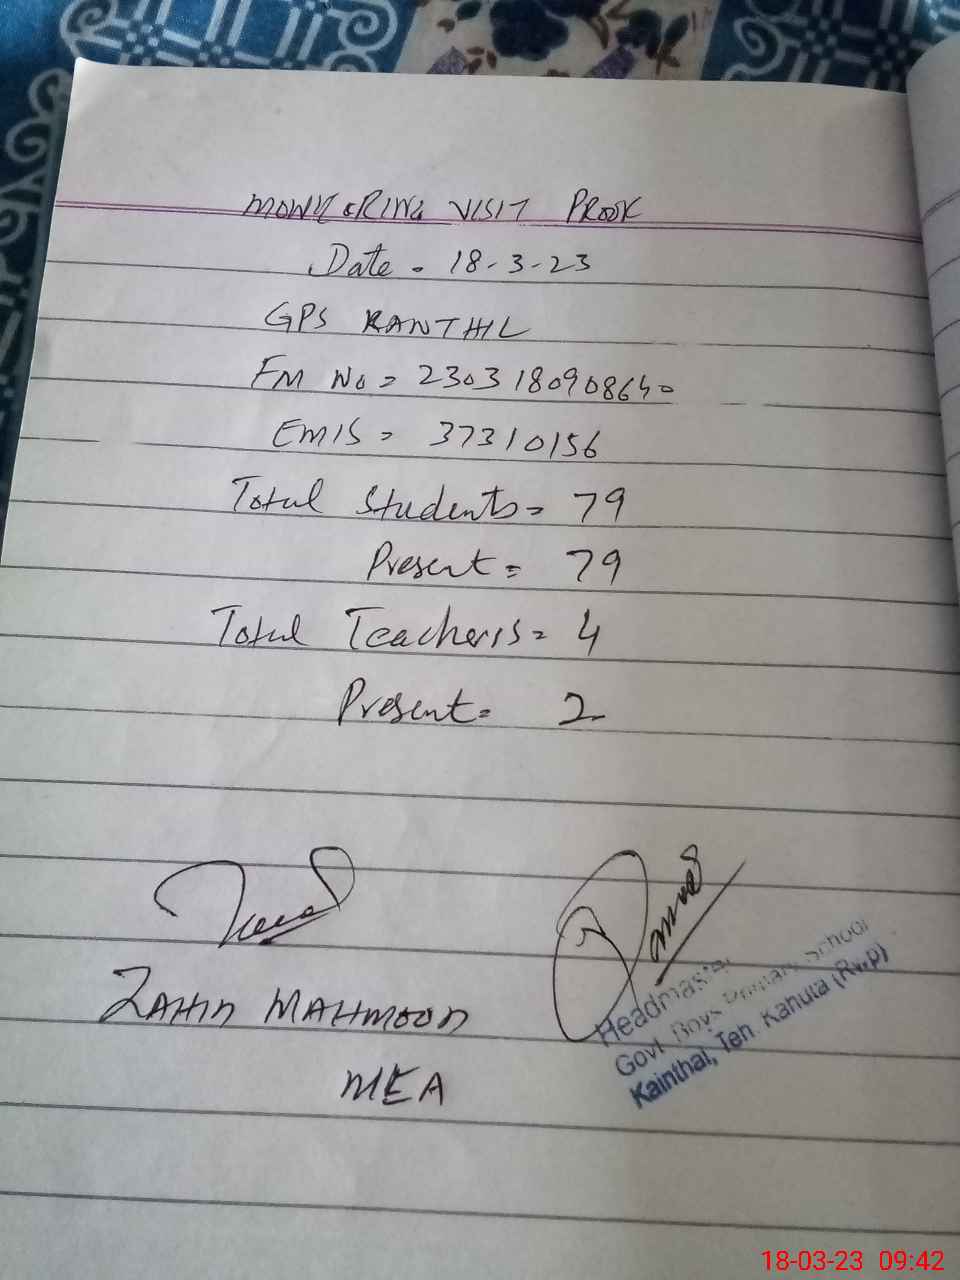 MONITORING VISIT PROOF
Date - 18-3-23
GPS KANTHIL
FM No = 2303180908640
EMIS = 37310156
Total Students = 79
Present = 79
Total Teachers = 4
Present = 2
ZAHID MAHMOOD
MEA
Headmaster
Govt Boys Primary School
Kainthal, Teh. Kahuta (Rwp)
18-03-23 09:42